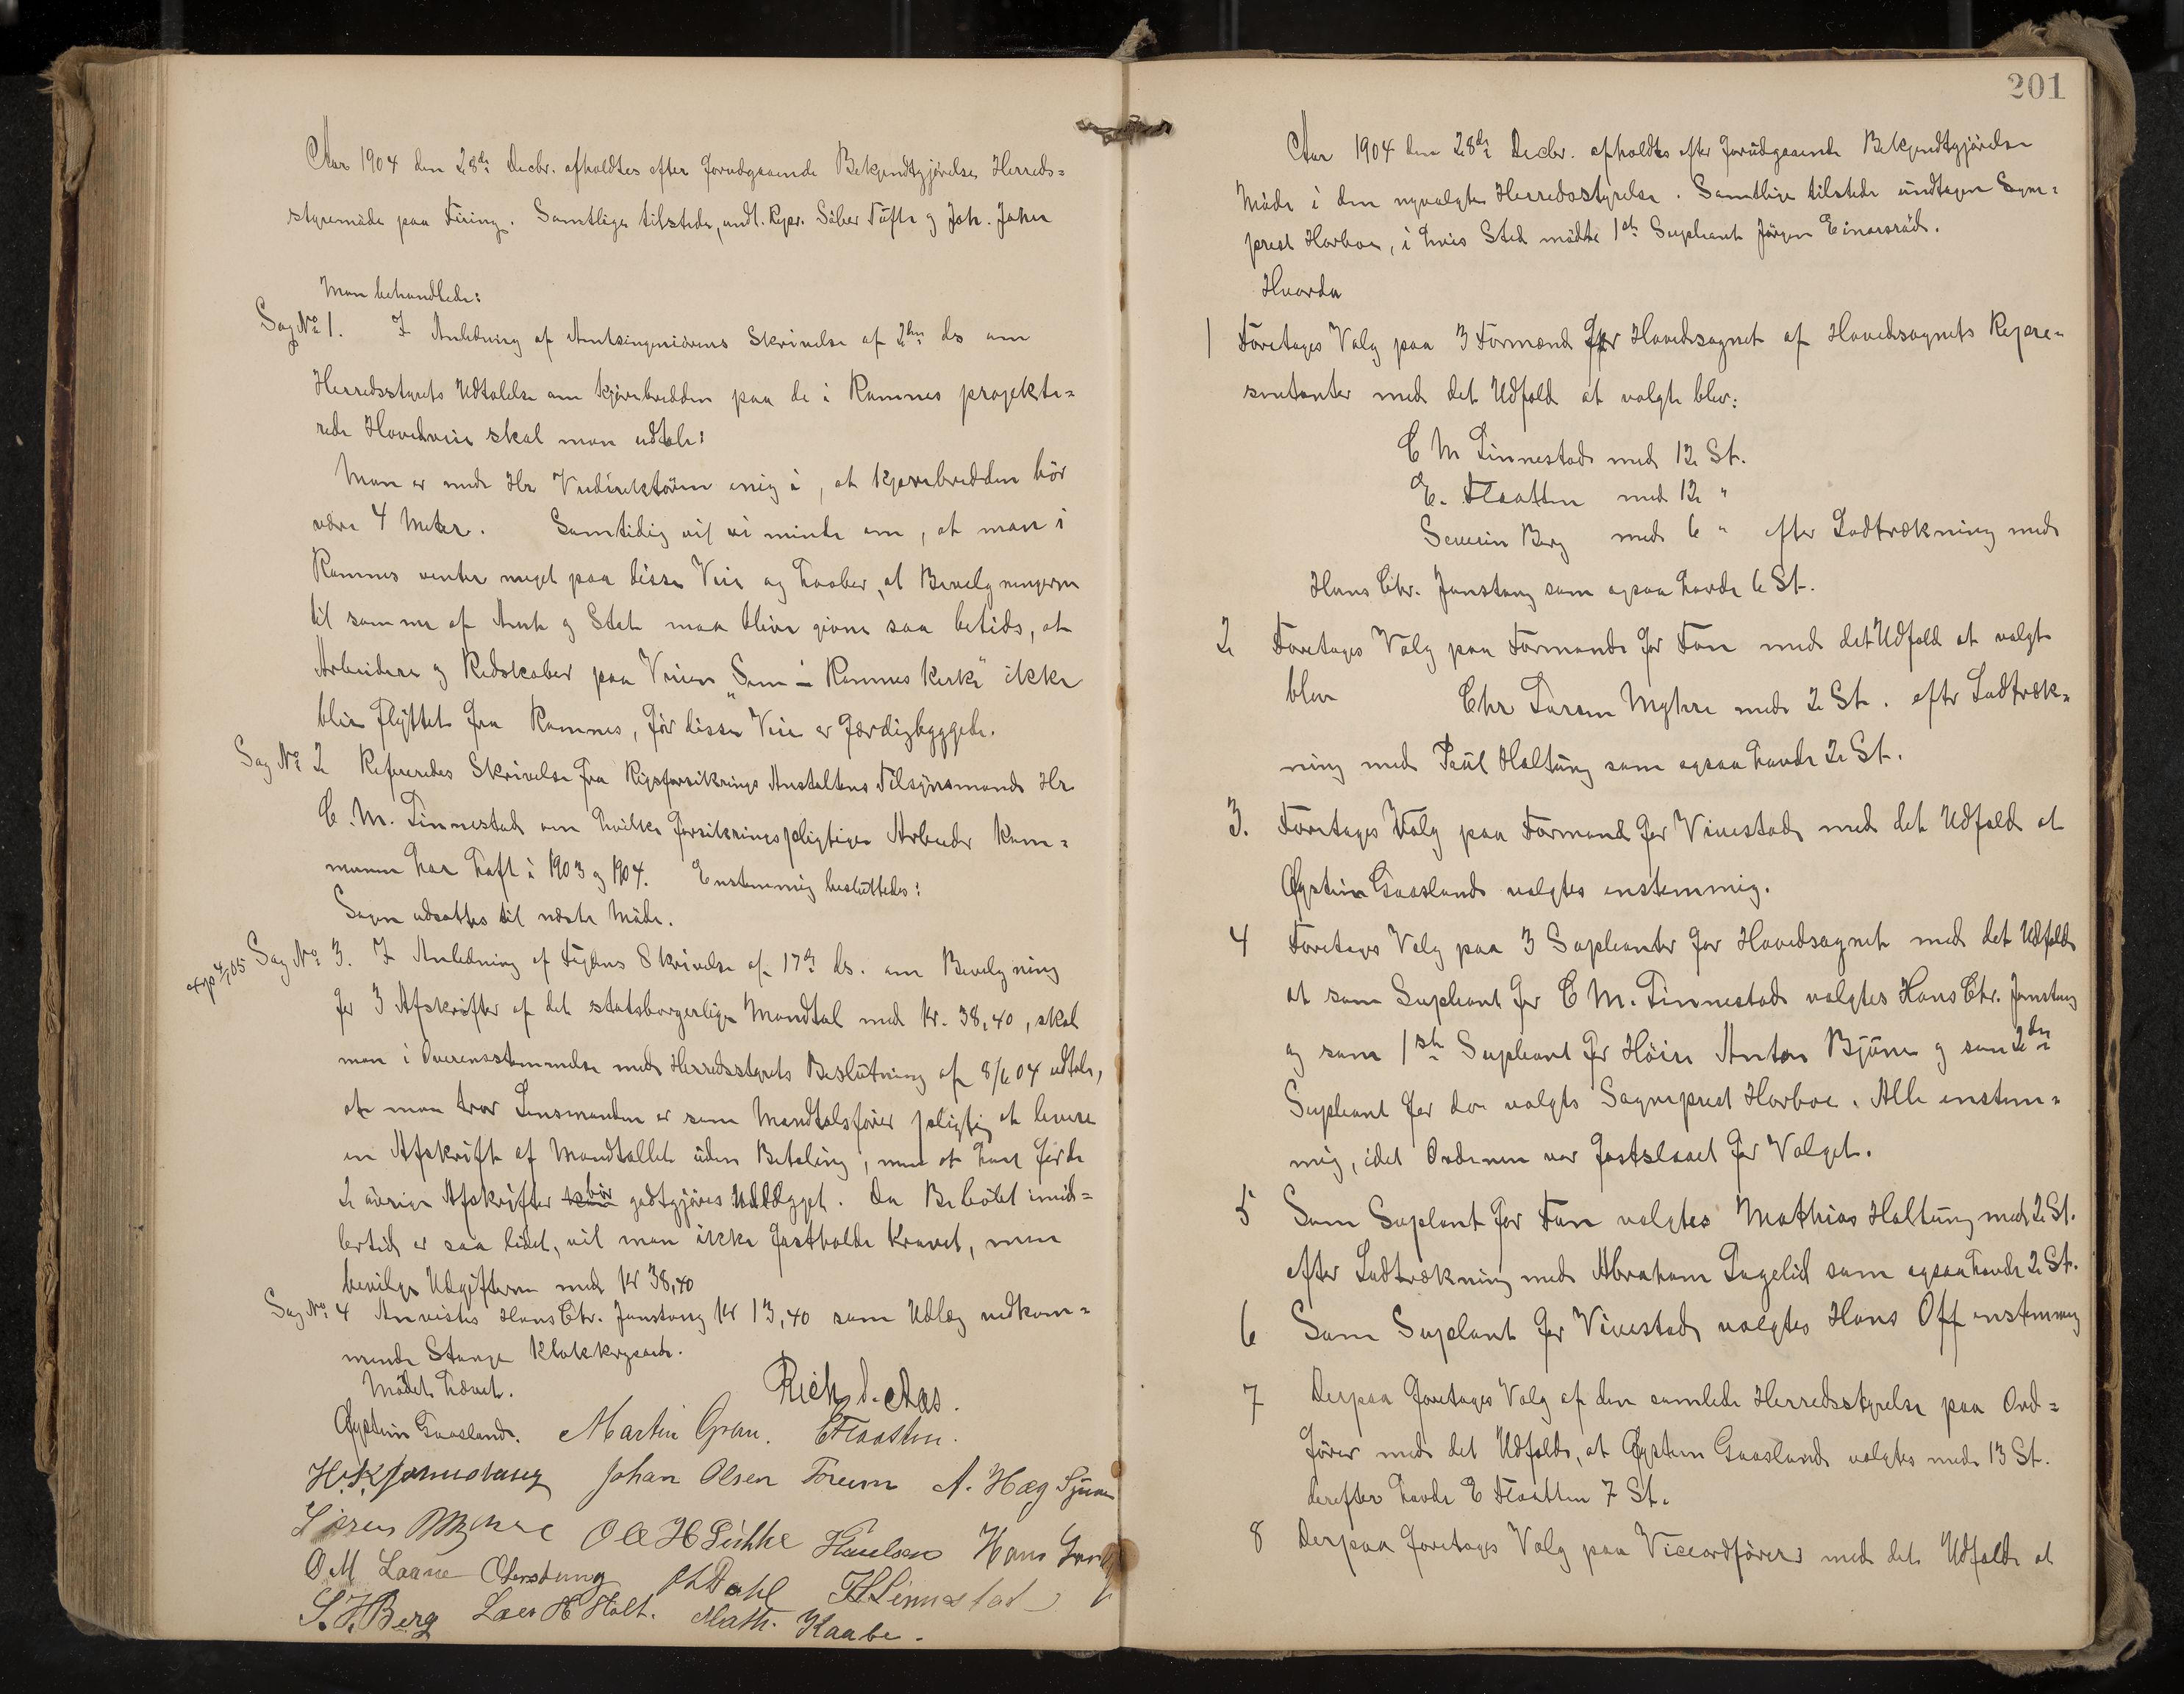 Aar 1904 den 28de Decbr. afholdtes efter forudgaaende Bekjendtgjørelse Herreds=
styremøde paa Firing. Samtlige tilstede, undt. Repr. Sølver Tufte og Joh. Johns
Man behandlede:
Sag No 1. I Anledning af Amtsingeniørens Skrivelse af 2den ds om
Herredsstyrets Udtalelse om Kjørebredden paa de i Ramnes projekte=
rede Hovedveie skal man udtale:
Man er med Hr Veidirektøren enig i, at Kjørebredden bør
være 4 Meter. Samtidig vil vi minde om, at man i
Ramnes venter meget paa disse Veie og haaber, at Bevilgningerne
til samme af Amt og Stat maa blive givne saa betids, at
Arbeidere og Redskaber paa Veien "Sem – Ramnes Kirke" ikke
blir flyttet fra Ramnes, før disse Veie er færdigbyggede.
Sag No 2 Refereredes Skrivelse fra Rigsforsikrings Anstaltens Tilsynsmand Hr
C. M. Linnestad om hvilke forsikringspligtige Arbeider Kom=
munen har havt i 1903 og 1904. Enstemmig besluttedes:
Sagen udsattes til næste Møde.
exp 4/1 05 Sag No 3. I Anledning af Fogdens Skrivelse af 17de ds. om Bevilgning
for 3 Afskrifter af det statsborgerlige Mandtal med Kr. 38,40, skal
man i Overensstemmelse med Herredsstyrets Beslutning af 8/6 04 udtale,
at man tror Lensmanden er som Mandtalsfører pligtig at levere
en Afskrift af Mandtallet uden Betaling, men at han for de
2 øvrige Afskrifter bør godtgjøres Udlægget. Da Beløbet imid=
lertid er saa lidet, vil man ikke fastholde Kravet, men
bevilge Udgifterne med Kr 38,40
Sag No 4 Anvistes Hans Chr. Jonstang Kr 13,40 som Udlæg vedkom=
mende Stange Klokkergaard.
Mødet hævet.
Rich. d. Aas.
Øystein Gaasland. Martin Gran. E Flaatten.
H. K. Jonnstang Johan Olsen Foreim A. Hæg
Søren Myhre Ole H Paulsen Hans
O M Laane Oldahl Linnestad
S. J. Berg Lars H Holt. Math. Kaabe.
201
Aar 1904 den 28de Decbr. afholdtes efter forudgaaende Bekjendtgjørelse
Møde i den nyvalgte Herredsstyrelse. Samtlige tilstede undtagen Sogne=
prest Horboe, i hvis Sted mødte 1ste Supleant Jørgen Einarsrød.
Hvorda
1 Foretoges Valg paa 3 Formænd for Hovedsognet af Hovedsognets Repræ=
sentanter med det Udfald at valgte blev:
C M Linnestad med 12 St.
E. Flaatten med 12 "
Severin Berg med 6 " efter Lodtrækning med
Hans Chr. Jonstang som ogsaa havde 6 St.
2 Foretoges Valg paa Formand for Fon med det Udfald at valgt
blev Chr Larsen Myhre med 2 St. efter Lodtræk=
ning med Paul Haltung som ogsaa havde 2 St.
3. Foretoges Valg paa Formand for Vivestad med det Udfald at
Øystein Gaasland valgtes enstemmig.
4 Foretoges Valg paa 3 Supleanter for Hovedsognet med det Udfald
at som Supleant for C M. Linnestad valgtes Hans Chr. Jonstang
og som 1ste Supleant for Høire Anton Bjune og som 2den
Supleant for do valgtes Sogneprest Horboe. Alle enstem=
mig, idet Ordenen var fastslaaet før Valget.
5 Som Suplant for Fon valgtes Mathias Haltung med 2 St.
efter Lodtrækning med Abraham Lagelid som ogsaa havde 2 St.
6 Som Suplant for Vivestad valgtes Hans Off enstemmig
7 Derpaa foretoges Valg af den samlede Herredsstyrelse paa Ord=
fører med det Udfald, at Øystein Gaasland valgtes med 13 St.
derefter havde E Flaatten 7 St.
8 Derpaa foretoges Valg paa Viceordfører med det Udfald at